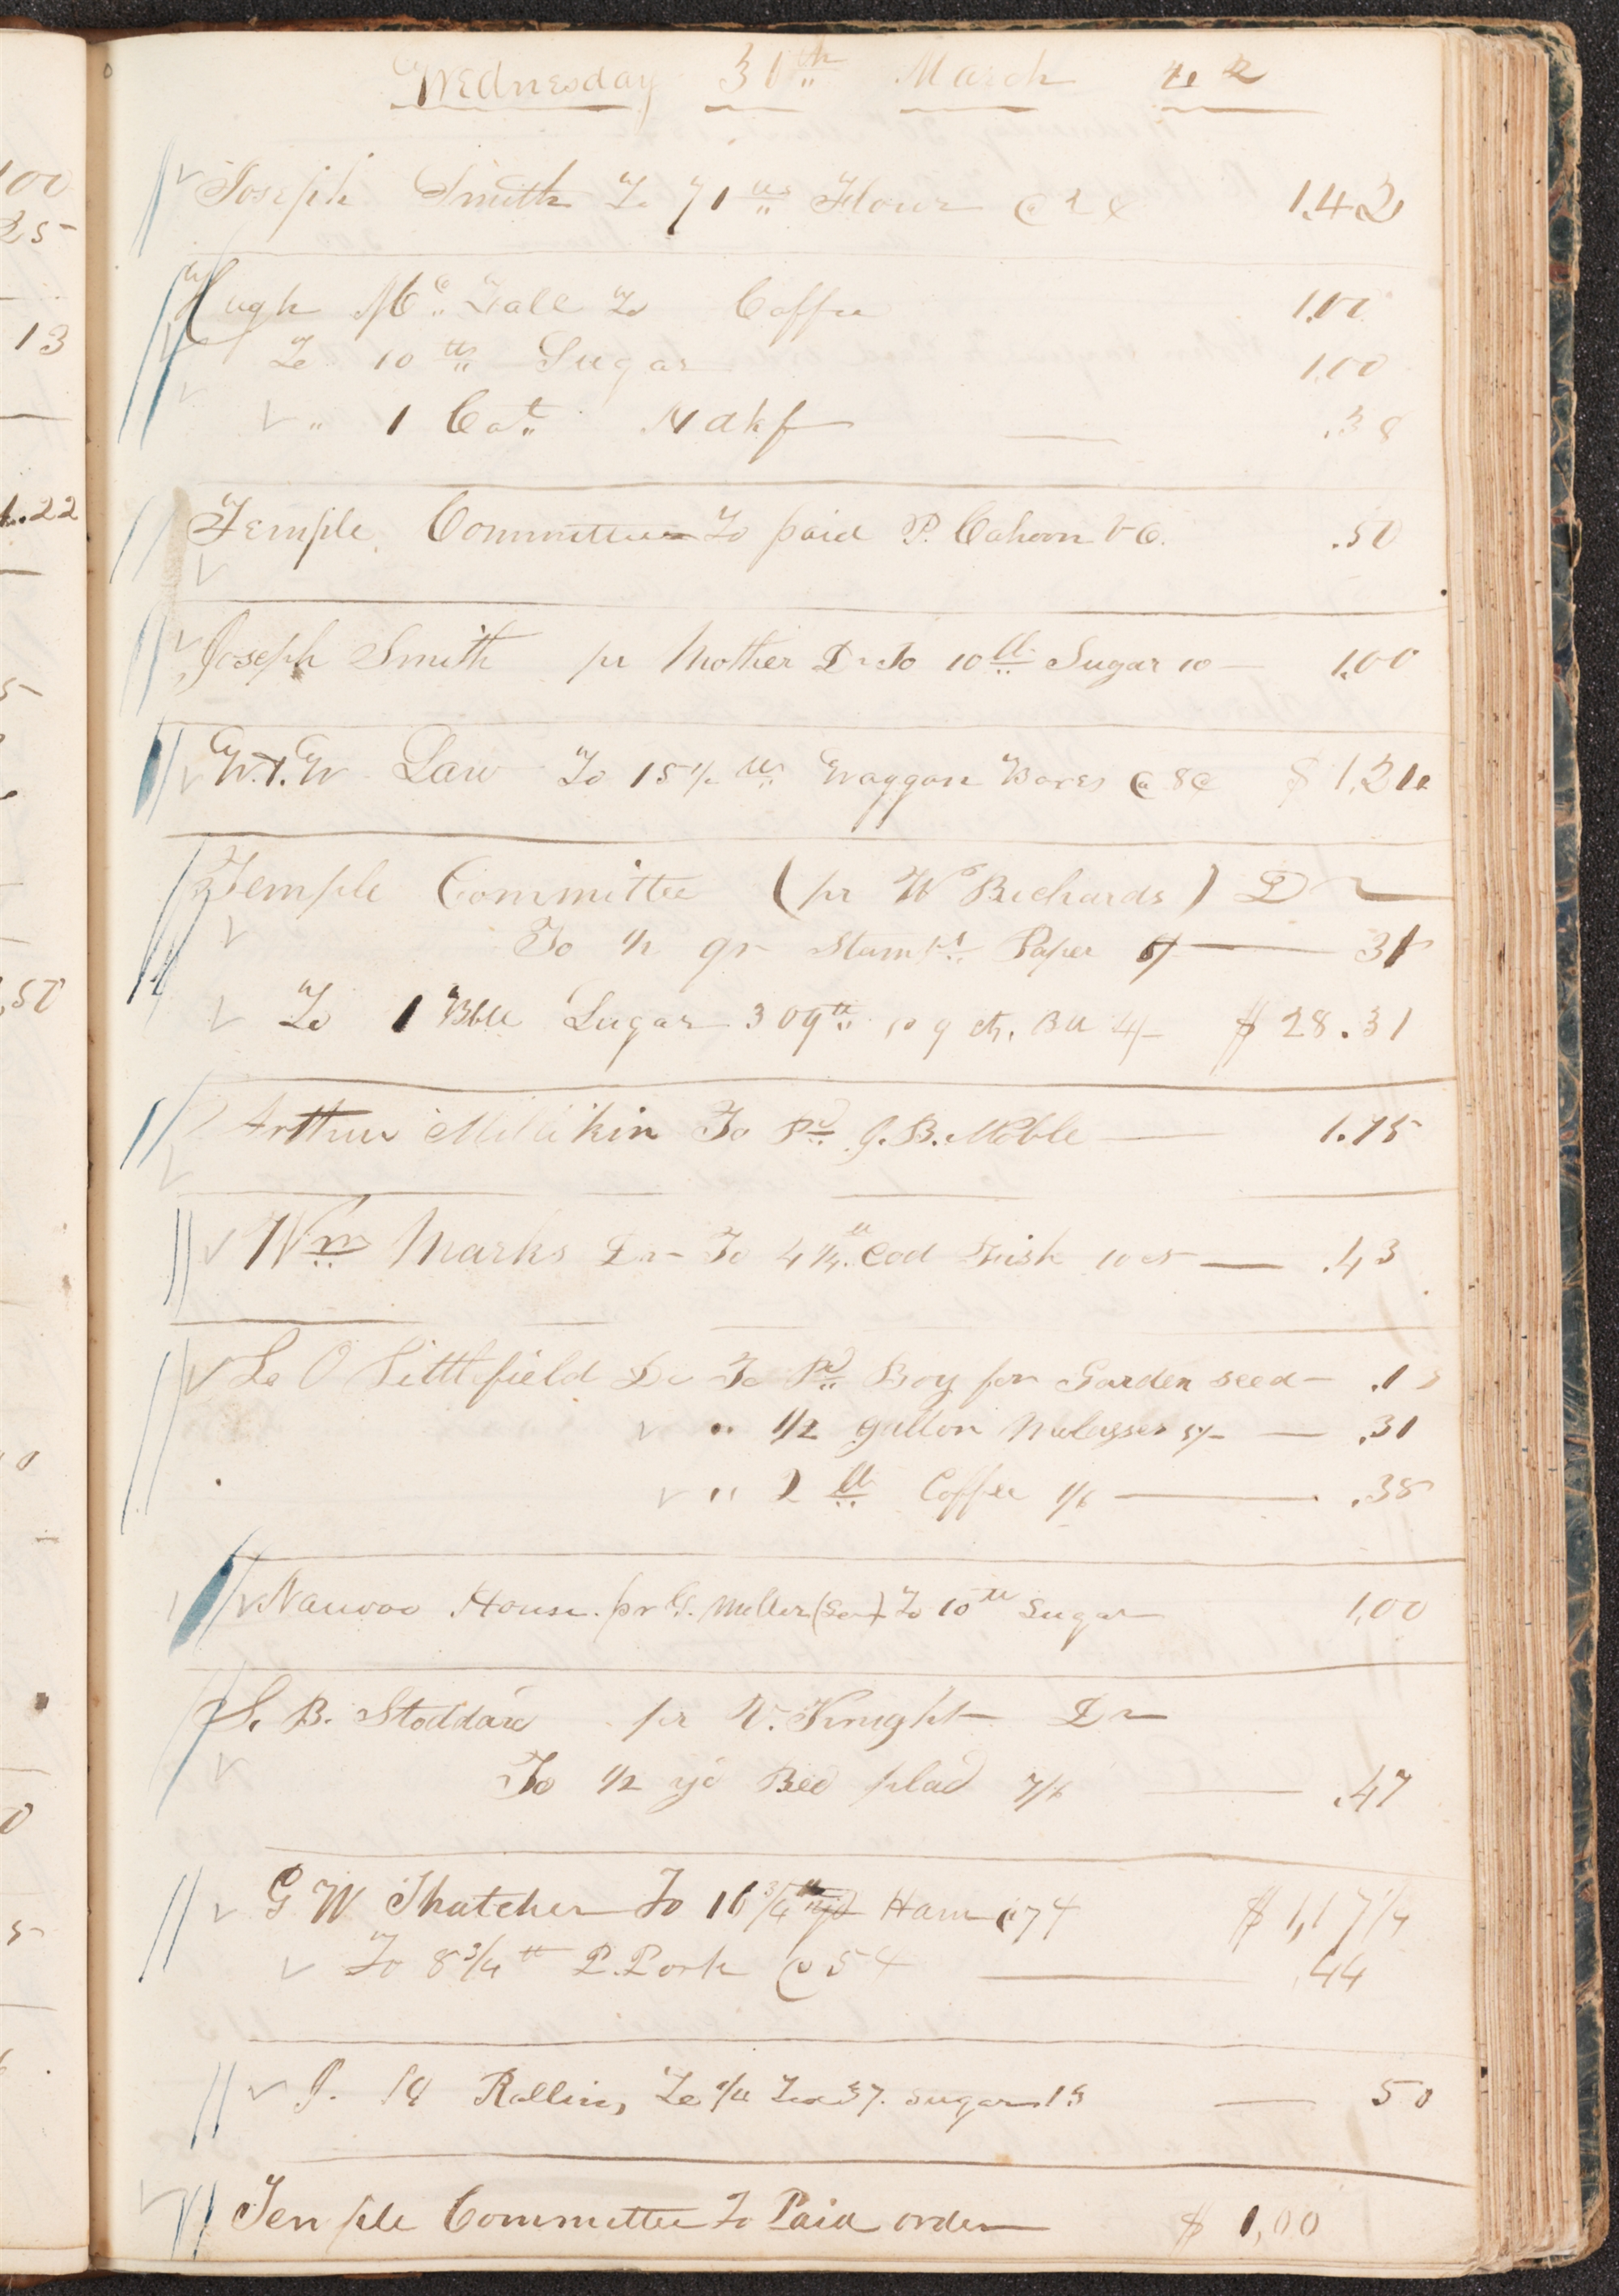 100
25
13
1.22
.50
Wednesday 30th March 42
Joseph Smith To 71 lbs Flour @ 2 ¢ 1.42
Hugh Mc. Fall To Coffee 1.00
To 10 lbs Sugar 1.00
" 1 Cot. Hdkf .38
Temple Committee To paid P. Cahoon V O. .50
Joseph Smith pr Mother Dr To 10 lb Sugar 10 — 1.00
W. & W Law To 15 1/2 lbs Waggon Boxes @ 8¢ $ 1.24
Temple Committee (pr W Richards) Dr
To 1/2 qr Stampt. Paper 5/ — 31
To 1 Bbl Sugar 309 lb 9 cts. Bll 4/- $ 28.31
Arthur Millikin To Pd J. B. Noble — 1.75
Wm Marks Dr To 4 1/4 lb Cod Fish 10 cts — .43
L O Littlefield Dr To Pd Boy for Garden seed — .13
" 1/2 gallon Molasses 5/- — .31
" 2 lb Coffee 1/6 — .38
Nauvoo House. pr G. Miller (Sen) To 10 lb Sugar 1,00
S. B. Stoddard pr V. Knight Dr
To 1/2 yd Bed plad 7/6 — .47
G W Thatcher To 16 3/4 lb Ham @ 7 ¢ $ 1,17 1/4
To 8 3/4 lb P. Pork @ 5 ¢ — .44
J. H Rollins, To 1/4 Tea 37. sugar 13 — 50
Temple Committee To Paid order $ 1,00